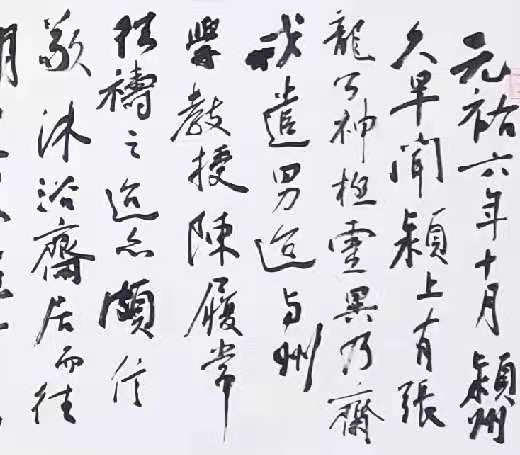 元祐六年十月潁州
久旱聞潁上有張
龍公神極靈異乃齋
戒遣男迨与州
學教授陳履常
往禱之迨亦頗信
敬沐浴齋居而往